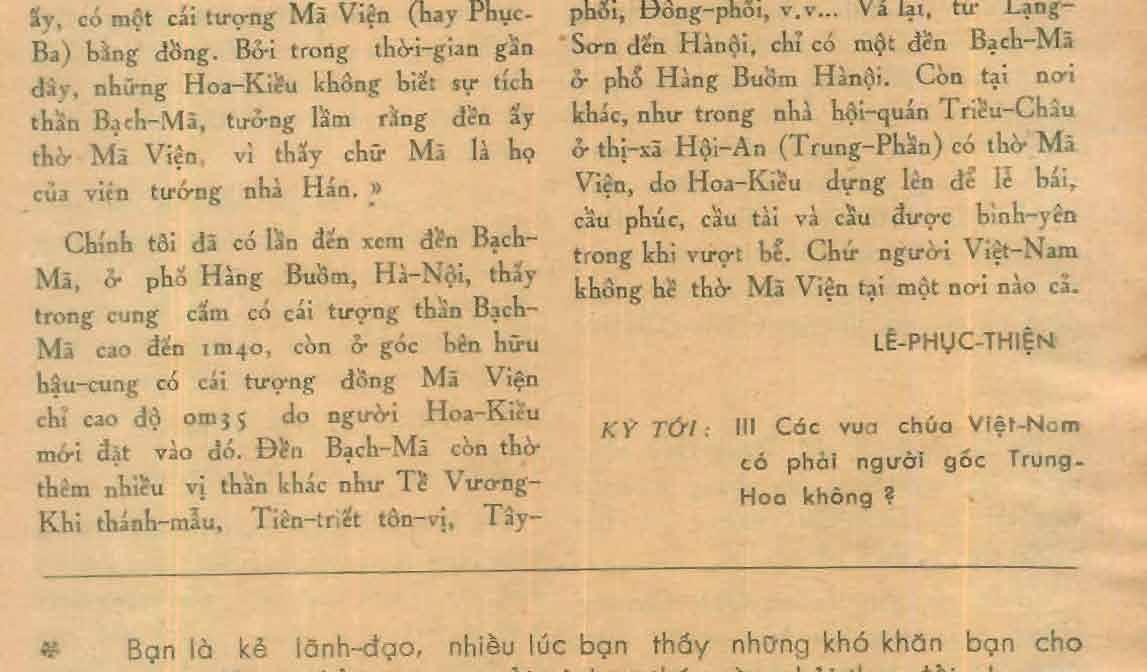 ấy, có một cái tượng Mã Viện (hay Phục-
Ba) bằng đồng. Bởi trong thời-gian gần
đây, những Hoa-Kiều không biết sự tích
thần Bạch-Mã, tưởng lầm rằng đền ấy
thờ Mã Viện, vì thấy chữ Mã là họ
của viên tướng nhà Hán. »
Chính tôi đã có lần đến xem đền Bạch-
Mã, ở phố Hàng Buồm, Hà-Nội, thấy
trong cung cấm có cái tượng thần Bạch-
Mã cao đến 1m40, còn ở góc bên hữu
hậu-cung có cái tượng đồng Mã Viện
chỉ cao độ 0m35 do người Hoa-Kiều
mới đặt vào đó. Đền Bạch-Mã còn thờ
thêm nhiều vị thần khác như Tề Vương-
Khi thánh-mẫu, Tiên-triết tôn-vị, Tây-
phối, Đông-phối, v.v... Vả lại, từ Lạng-
Sơn đến Hànội, chỉ có một đền Bạch-Mã
ở phố Hàng Buồm Hànội. Còn tại nơi
khác, như trong nhà hội-quán Triều-Châu
ở thị-xã Hội-An (Trung-Phần) có thờ Mã
Viện, do Hoa-Kiều dựng lên để lễ bái,
cầu phúc, cầu tài và cầu được bình-yên
trong khi vượt bể. Chứ người Việt-Nam
không hề thờ Mã Viện tại một nơi nào cả.
LÊ-PHỤC-THIỆN
KỲ TỚI : III Các vua chúa Việt-Nam
có phải người gốc Trung-
Hoa không ?
Bạn là kẻ lãnh-đạo, nhiều lúc bạn thấy những khó khăn bạn cho